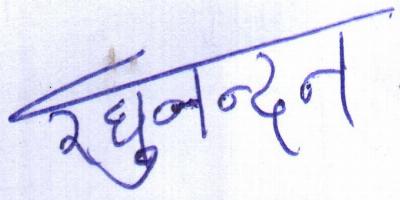 रघुनन्दन